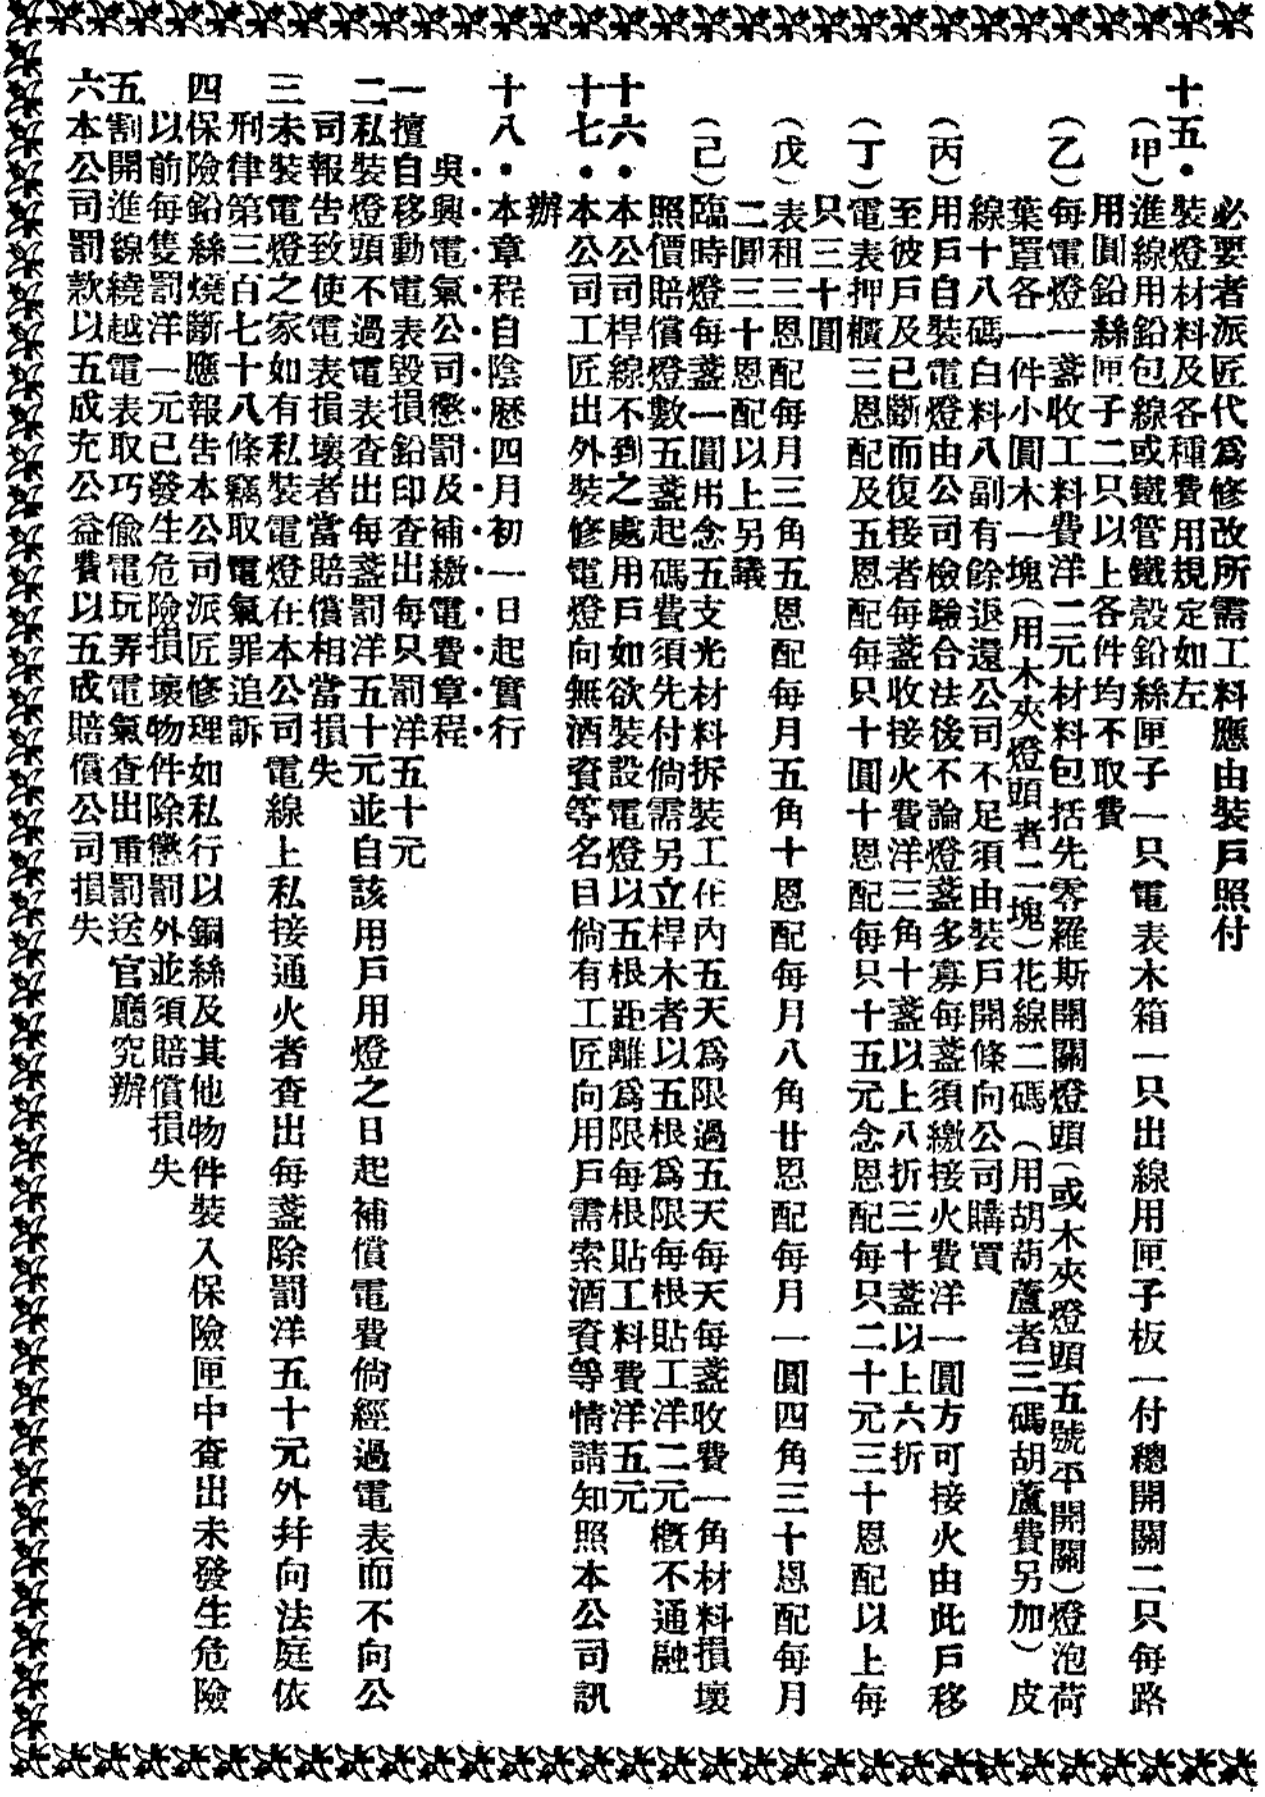 必要者派匠代爲修改所需工料應由裝戶照付
十五·裝燈材料及各種費用規定如左
(甲)進線用鉛包線或鐵管鐵殼鉛絲匣子一只電表木箱一只出線用匣子板一付總開關二只每路
用圓鉛絲匣子二只以上各件均不取費
(乙)每電燈一盞收工料費洋二元材料包括先零羅斯開關燈頭(或木夾燈頭五號平開關)燈泡荷
葉罩各一件小圓木一塊(用木夾燈頭者二塊)花線二碼(用胡葫蘆者三碼胡蘆費另加)皮
線十八碼白料八副有餘退還公司不足須由裝戶開條向公司購買
(丙)用戶自裝電燈由公司檢驗合法後不論燈盞多寡每盞須繳接火費洋一圓方可接火由此戶移
至彼戶及已斷而復接者每盞收接火費洋三角十盞以上八折三十盞以上六折
(丁)電表押櫃三恩配及五恩配每只十圓十恩配每只十五元念恩配每只二十元三十恩配以上每
只三十圓
(戊)表租三恩配每月三角五恩配每月五角十恩配每月八角廿恩配每月一圓四角三十恩配每月
二圓三十恩配以上另議
(己)臨時燈每盞一圓用念五支光材料拆裝工在內五天爲限過五天每天每盞收費一角材料損壞
照價賠償燈數五盞起碼費須先付倘需另立桿木者以五根爲限每根貼工洋二元概不通融
十六·本公司桿線不到之處用戶如欲裝設電燈以五根距離爲限每根貼工料費洋五元
十七·本公司工匠出外裝修電燈向無酒資等名目倘有工匠向用戶需索酒資等情請知照本公司訊
辦
十八·本章程自陰曆四月初一日起實行
吳興電氣公司懲罰及補繳電費章程
一擅自移動電表毀損鉛印查出每只罰洋五十元
二私裝燈頭不過電表查出每盞罰洋五十元並自該用戶用燈之日起補償電費倘經過電表而不向公
司報告致使電表損壞者當賠償相當損失
三未裝電燈之家如有私裝電燈在本公司電線上私接通火者查出每盞除罰洋五十元外幷向法庭依
刑律第三百七十八條竊取電氣罪追訴
四保險鉛絲燒斷應報告本公司派匠修理如私行以銅絲及其他物件裝入保險匣中查出未發生危險
以前每隻罰洋一元已發生危險損壞物件除懲罰外並須賠償損失
五割開進線繞越電表取巧偸電玩弄電氣查出重罰送官廳究辦
六本公司罰款以五成充公益費以五成賠償公司損失